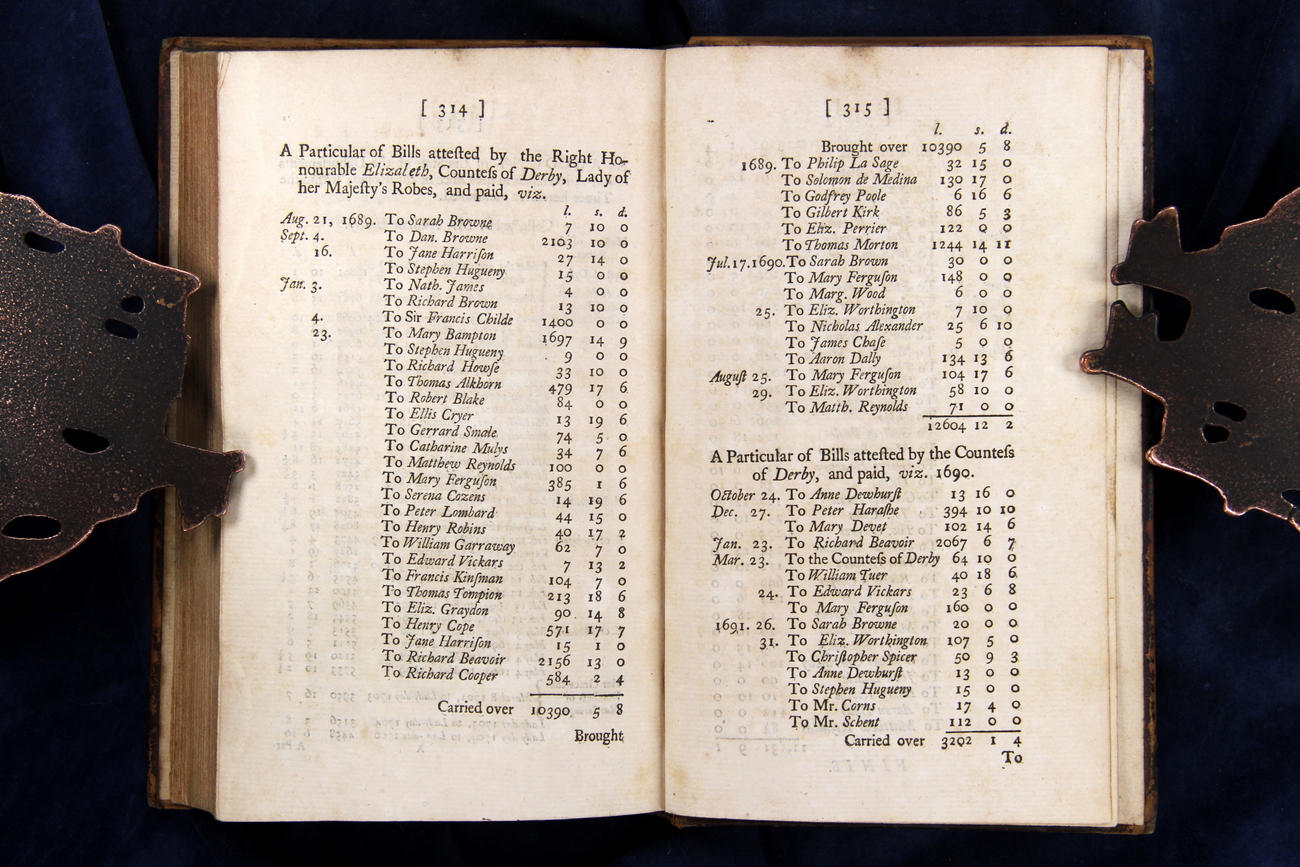 [ 314 ]
A Particular of Bills atteſted by the Right Ho-
nourable Elizaleth, Counteſs of Derby, Lady of
her Majeſty's Robes, and paid, viz.
l. s. d.
Aug. 21, 1689. To Sarah Browne 7 10 0
Sept. 4. To Dan. Browne 2103 10 0
16. To Jane Harriſon 27 14 0
To Stephen Hugueny 15 0 0
Jan. 3. To Nath. James 4 0 0
To Richard Brown 13 10 0
4. To Sir Francis Childe 1400 0 0
23. To Mary Bampton 1697 14 9
To Stephen Hugueny 9 0 0
To Richard Howſe 33 10 0
To Thomas Alkhorn 479 17 6
To Robert Blake 84 0 0
To Ellis Cryer 13 19 6
To Gerrard Smale 74 5 0
To Catharine Mulys 34 7 6
To Matthew Reynolds 100 0 0
To Mary Ferguſon 385 1 6
To Serena Cozens 14 19 6
To Peter Lombard 44 15 0
To Henry Robins 40 17 2
To William Garraway 62 7 0
To Edward Vickars 7 13 2
To Francis Kinſman 104 7 0
To Thomas Tompion 213 18 6
To Eliz. Graydon 90 14 8
To Henry Cope 571 17 7
To Jane Harriſon 15 1 0
To Richard Beavoir 2156 13 0
To Richard Cooper 584 2 4
Carried over 10390 5 8
Brought
[ 315 ]
l. s. d.
Brought over 10390 5 8
1689. To Philip La Sage 32 15 0
To Solomon de Medina 130 17 0
To Godfrey Poole 6 16 6
To Gilbert Kirk 86 5 3
To Eliz. Perrier 122 0 0
To Thomas Morton 1244 14 11
Jul. 17. 1690. To Sarah Brown 30 0 0
To Mary Ferguſon 148 0 0
To Marg. Wood 6 0 0
25. To Eliz. Worthington 7 10 0
To Nicholas Alexander 25 6 10
To James Chaſe 5 0 0
To Aaron Dally 134 13 6
Auguſt 25. To Mary Ferguſon 104 17 6
29. To Eliz. Worthington 58 10 0
To Matth. Reynolds 71 0 0
12604 12 2
A Particular of Bills atteſted by the Counteſs
of Derby, and paid, viz. 1690.
October 24. To Anne Dewhurſt 13 16 0
Dec. 27. To Peter Haraſhe 394 10 10
To Mary Devet 102 14 6
Jan. 23. To Richard Beavoir 2067 6 7
Mar. 23. To the Counteſs of Derby 64 10 0
To William Tuer 40 18 6
24. To Edward Vickars 23 6 8
To Mary Ferguſon 160 0 0
1691. 26. To Sarah Browne 20 0 0
31. To Eliz. Worthington 107 5 0
To Chriſtopher Spicer 50 9 3
To Anne Dewhurſt 13 0 0
To Stephen Hugueny 15 0 0
To Mr. Corns 17 4 0
To Mr. Schent 112 0 0
Carried over 3202 1 4
To